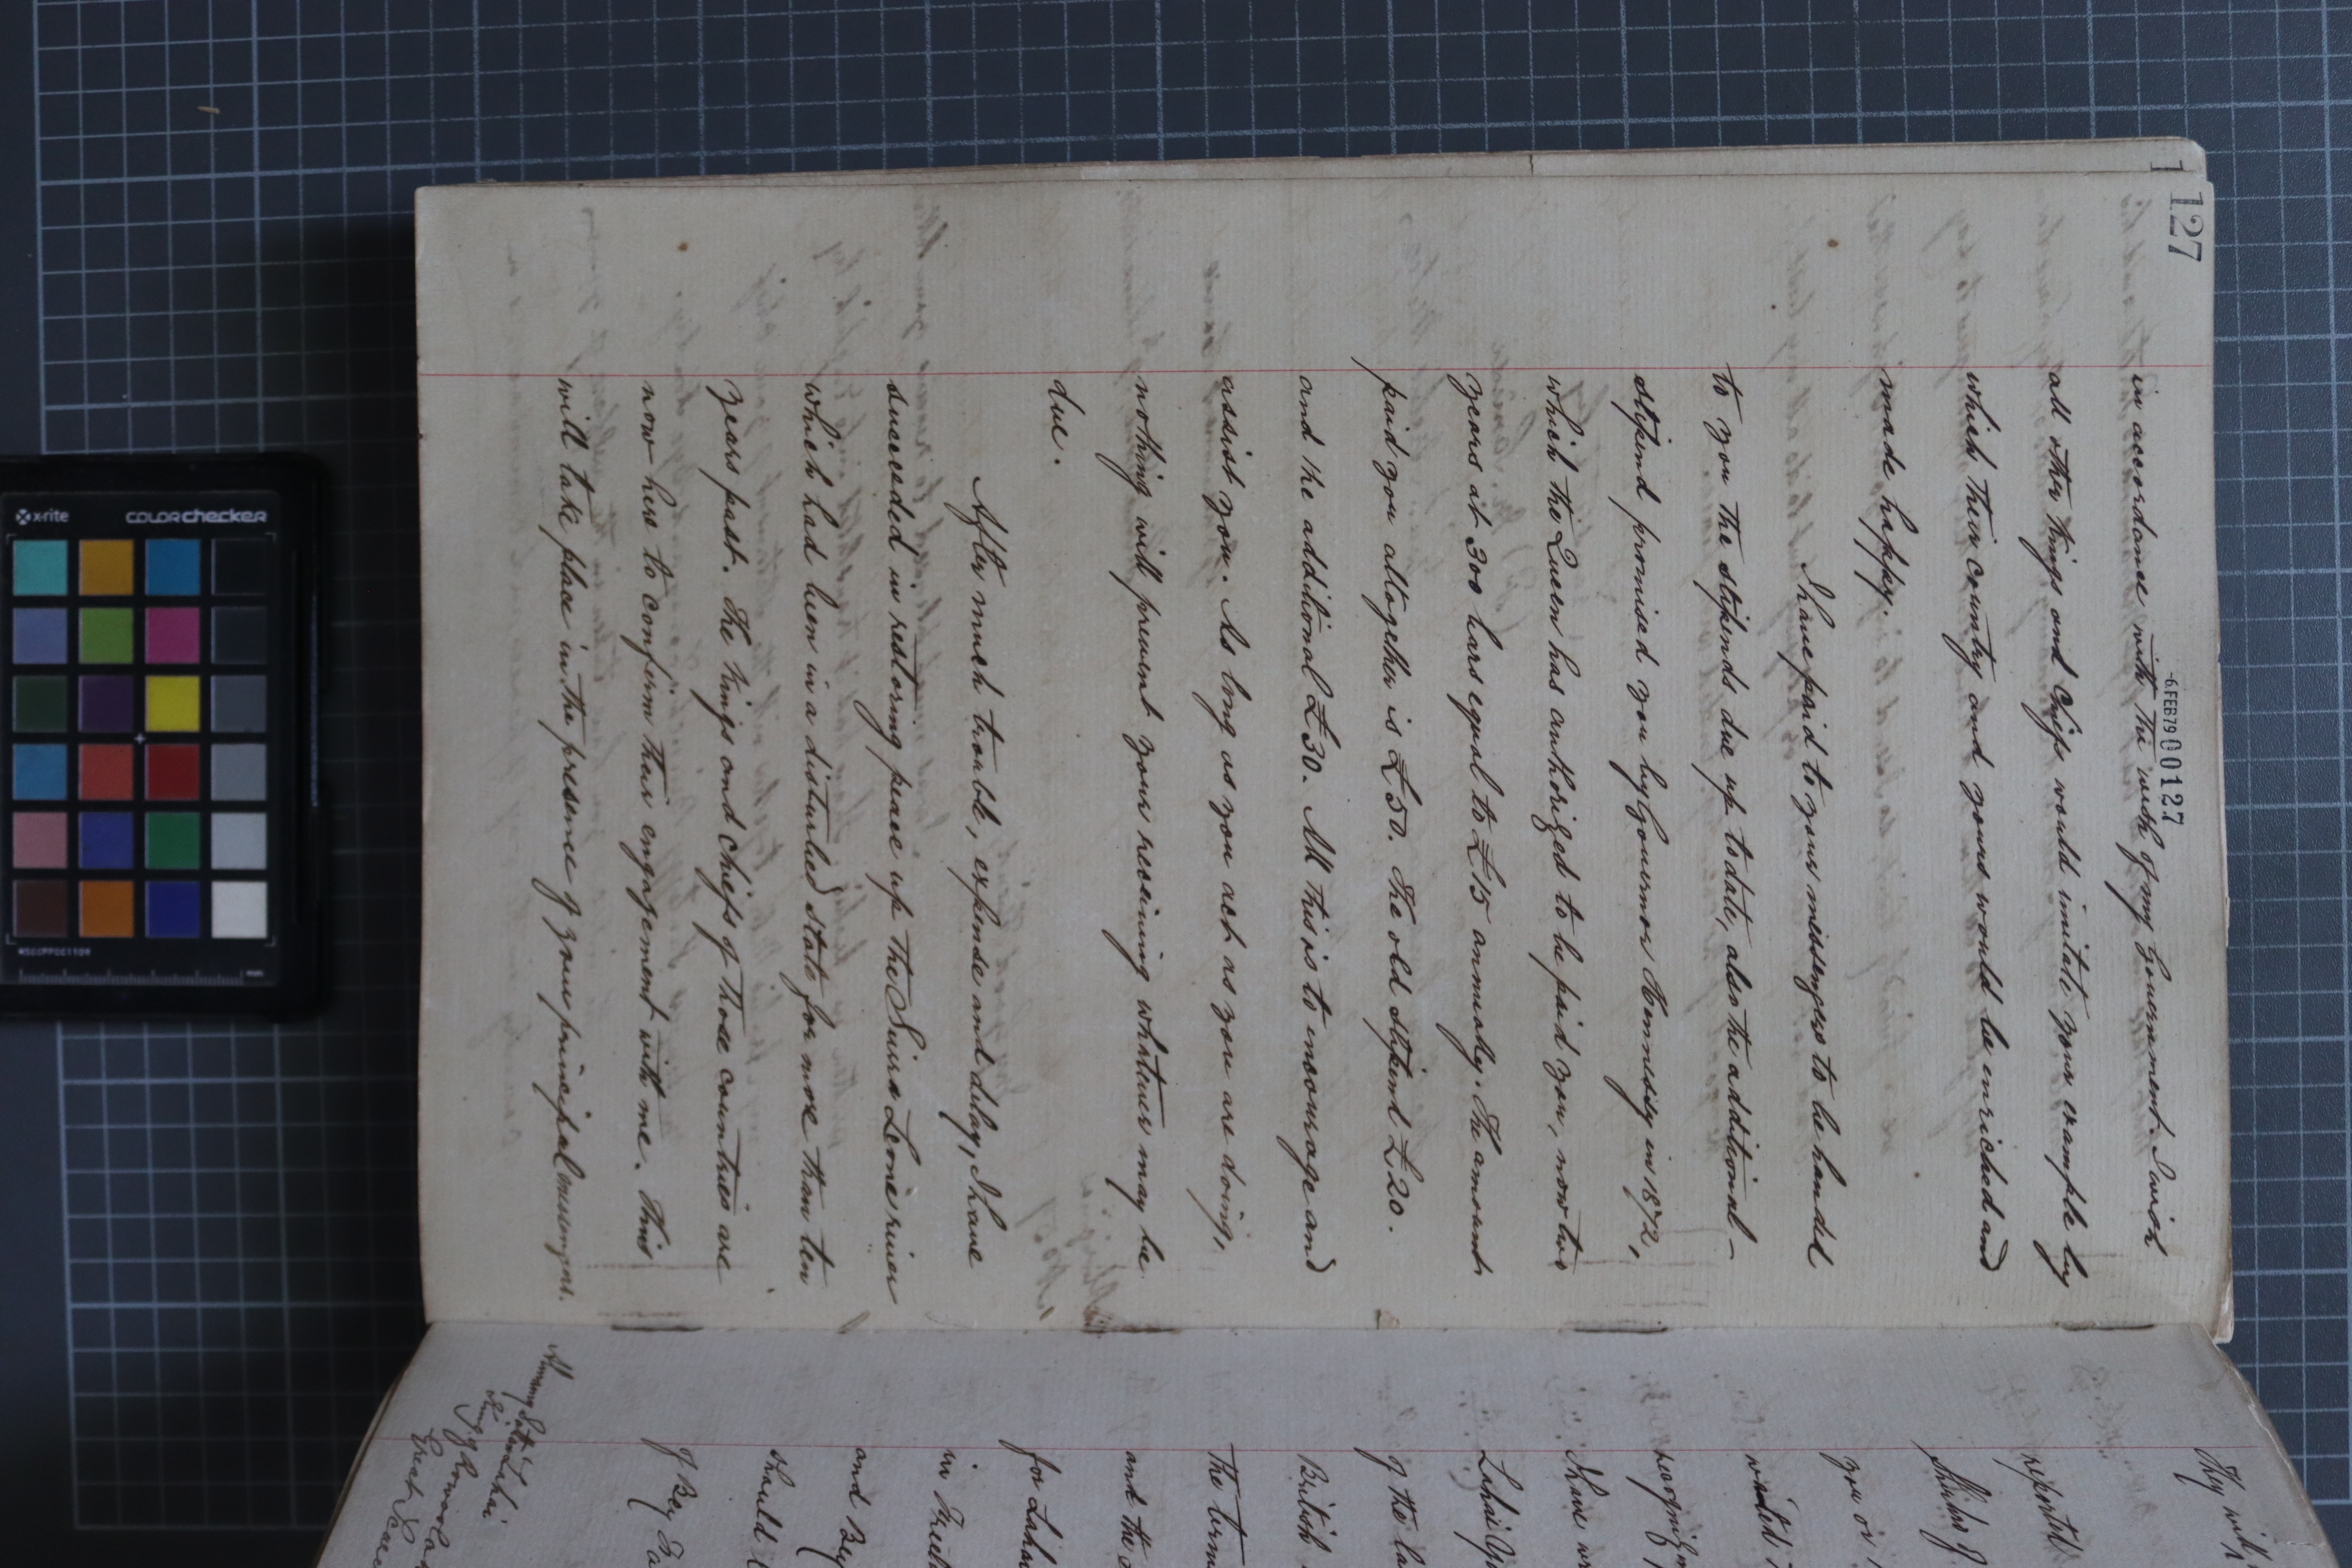 127
-6 FEB 79 000127
in accordance with the wish of my Government. I wish
all other Kings and Chiefs would imitate your example by
which their country and yours would be enriched and
made happy.
I have paid to your messengers to be handed
to you the stipends due up to date, also the additional
stipend promised you by Governor Hennessy in 1872,
which the Queen has authorized to be paid you, now two
years at 300 bars equal to £15 annually. The amount
paid you altogether is £50. The old stipend £20.
and the additional £30. All this is to encourage and
assist you. As long as you act as you are doing,
nothing will prevent your receiving whatever may be
due.
After much trouble, expense and delay, I have
succeeded in restoring peace up the Sierra Leone river
which had been in a disturbed state for more than ten
years past. The Kings and Chiefs of those countries are
now here to confirm their engagement with me. This
will take place in the presence of your principal messengers.
My
reported
you or
visited
recognize
I have
Lahai
of the
British
The
and the
for Lahai
in
and Bey
should
of Bey
Lahai
King of
Great
x-rite
colorchecker
MSCCPPCC1109
mm